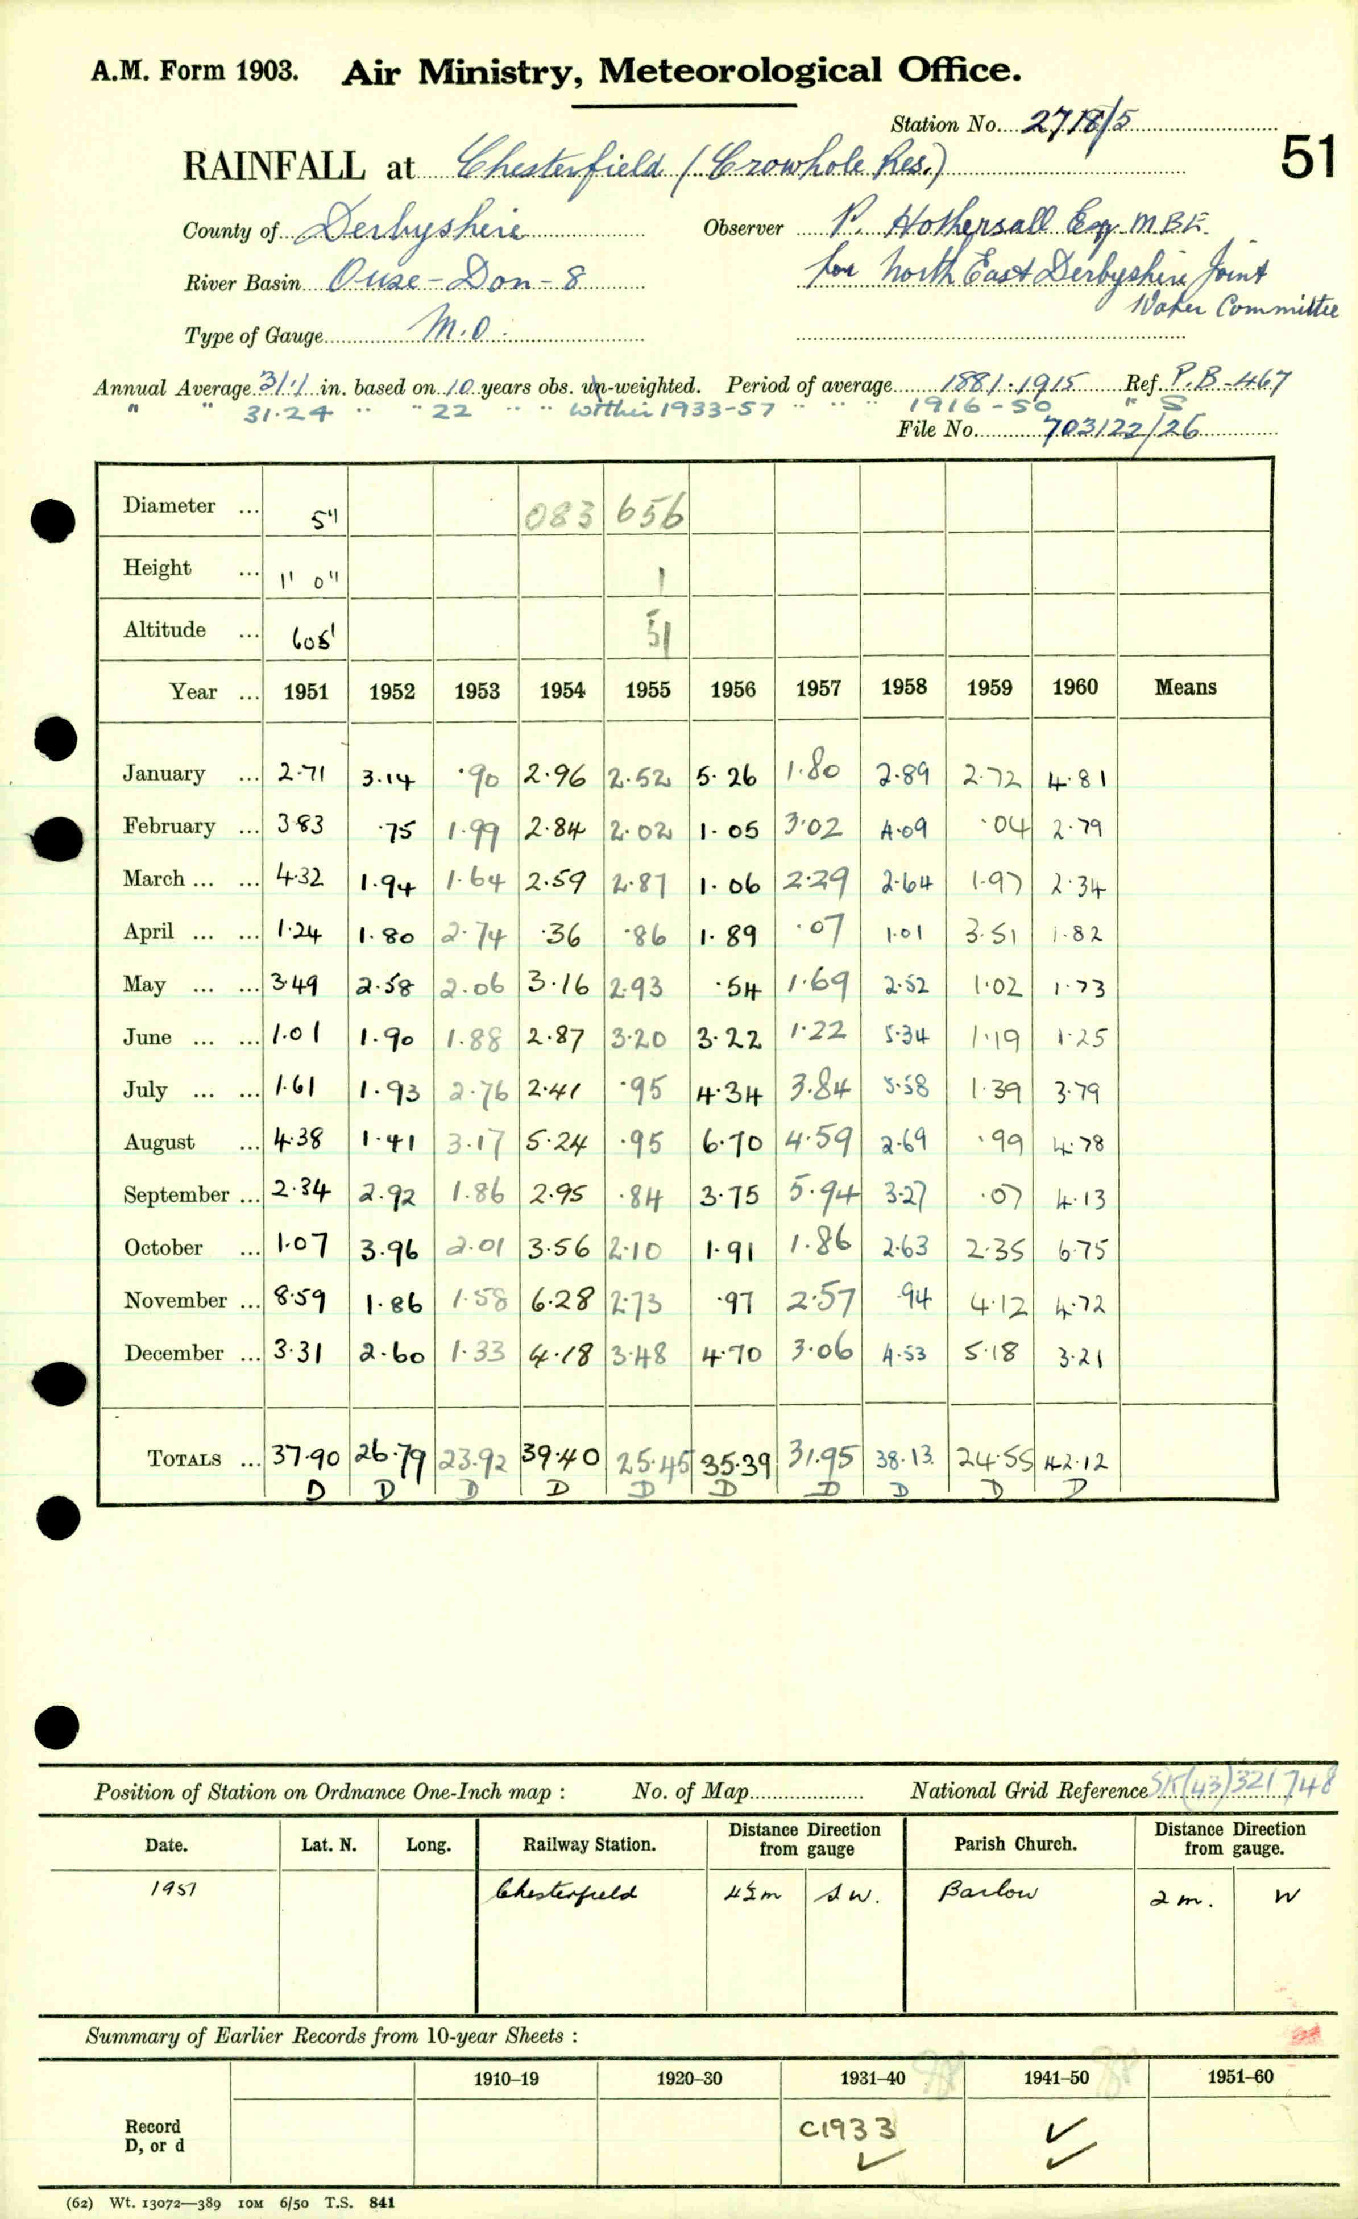 A.M. Form 1903. Air Ministry, Meteorological Office.
Station No. 2718/5
51
RAINFALL at Chesterfield (Crowhole Res.)
County of Derbyshire Observer P. Hothersall Esq. M B E.
River Basin Ouse-Don-8 for North East Derbyshire Joint
Water Committee
Type of Gauge M.O.
Annual Average 31.1 in. based on 10 years obs. un-weighted. Period of average 1881-1915 Ref. P.B-467
" " 31.24 " " 22 " " within 1933-57 " " " 1916-50 " S
File No. 703122/26
Diameter ... 5" 083 656
Height ... 1' 0" 1
Altitude ... 605' 51
Year ... 1951 1952 1953 1954 1955 1956 1957 1958 1959 1960 Means
January ... 2.71 3.14 .90 2.96 2.52 5.26 1.80 2.89 2.72 4.81
February ... 3.83 .75 1.99 2.84 2.02 1.05 3.02 4.09 .04 2.79
March ... ... 4.32 1.94 1.64 2.59 2.87 1.06 2.29 2.64 1.97 2.34
April ... ... 1.24 1.80 2.74 .36 .86 1.89 .07 1.01 3.51 1.82
May ... ... 3.49 2.58 2.06 3.16 2.93 .54 1.69 2.52 1.02 1.73
June ... ... 1.01 1.90 1.88 2.87 3.20 3.22 1.22 5.34 1.19 1.25
July ... ... 1.61 1.93 2.76 2.41 .95 4.34 3.84 5.58 1.39 3.79
August ... 4.38 1.41 3.17 5.24 .95 6.70 4.59 2.69 .99 4.78
September ... 2.34 2.92 1.86 2.95 .84 3.75 5.94 3.27 .07 4.13
October ... 1.07 3.96 2.01 3.56 2.10 1.91 1.86 2.63 2.35 6.75
November ... 8.59 1.86 1.58 6.28 2.73 .97 2.57 .94 4.12 4.72
December ... 3.31 2.60 1.33 4.18 3.48 4.70 3.06 4.53 5.18 3.21
TOTALS ... 37.90 26.79 23.92 39.40 25.45 35.39 31.95 38.13 24.55 42.12
D D D D D D D D D D
Position of Station on Ordnance One-Inch map : No. of Map National Grid Reference SK(43)321748
Date. Lat. N. Long. Railway Station. Distance Direction from gauge Parish Church. Distance Direction from gauge.
1951 Chesterfield 4½m S W. Barlow 2 m. W
Summary of Earlier Records from 10-year Sheets :
1910–19 1920–30 1931–40 1941–50 1951–60
Record
D, or d
C1933 ✓
✓ ✓
(62) Wt. 13072—389 10M 6/50 T.S. 841